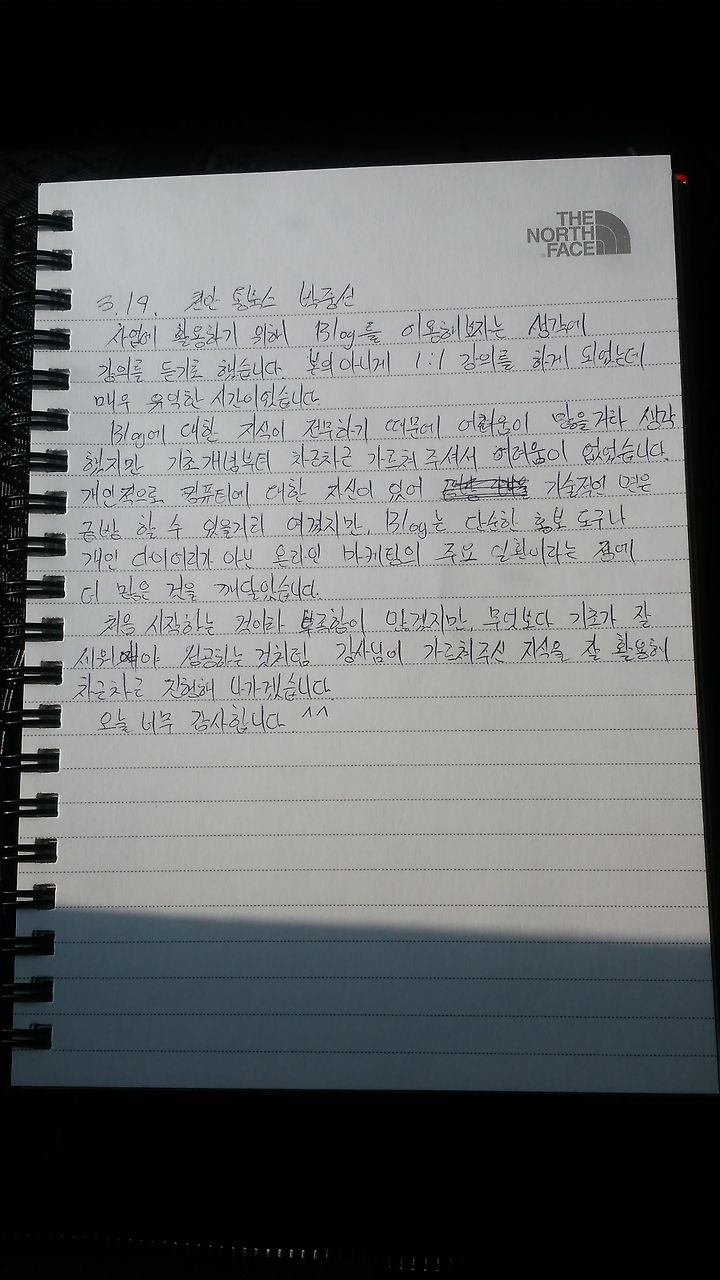 THE
NORTH
FACE
3.19. 천안 박중선
사업에 활용하기 위해 Blog를 이용해보자는 생각에
강의를 듣기로 했습니다. 본의 아니게 1:1 강의를 하게 되었는데
매우 유익한 시간이었습니다.
Blog에 대한 지식이 전무하기 때문에 어려움이 많을거라 생각
했지만 기초개념부터 차근차근 가르쳐 주셔서 어려움이 없었습니다.
개인적으로 컴퓨터에 대한 자신이 있어 기술적인 면은
금방 할 수 있을거라 여겼지만, Blog는 단순한 홍보 도구나
개인 다이어리가 아닌 온라인 마케팅의 주요 일환이라는 점에
더 많은 것을 깨달았습니다.
처음 시작하는 것이라 부족함이 많겠지만, 무엇보다 기초가 잘
세워져야 성공하는 것처럼 강사님이 가르쳐주신 지식을 잘 활용해
차근차근 진행해 나가겠습니다.
오늘 너무 감사합니다 ^^